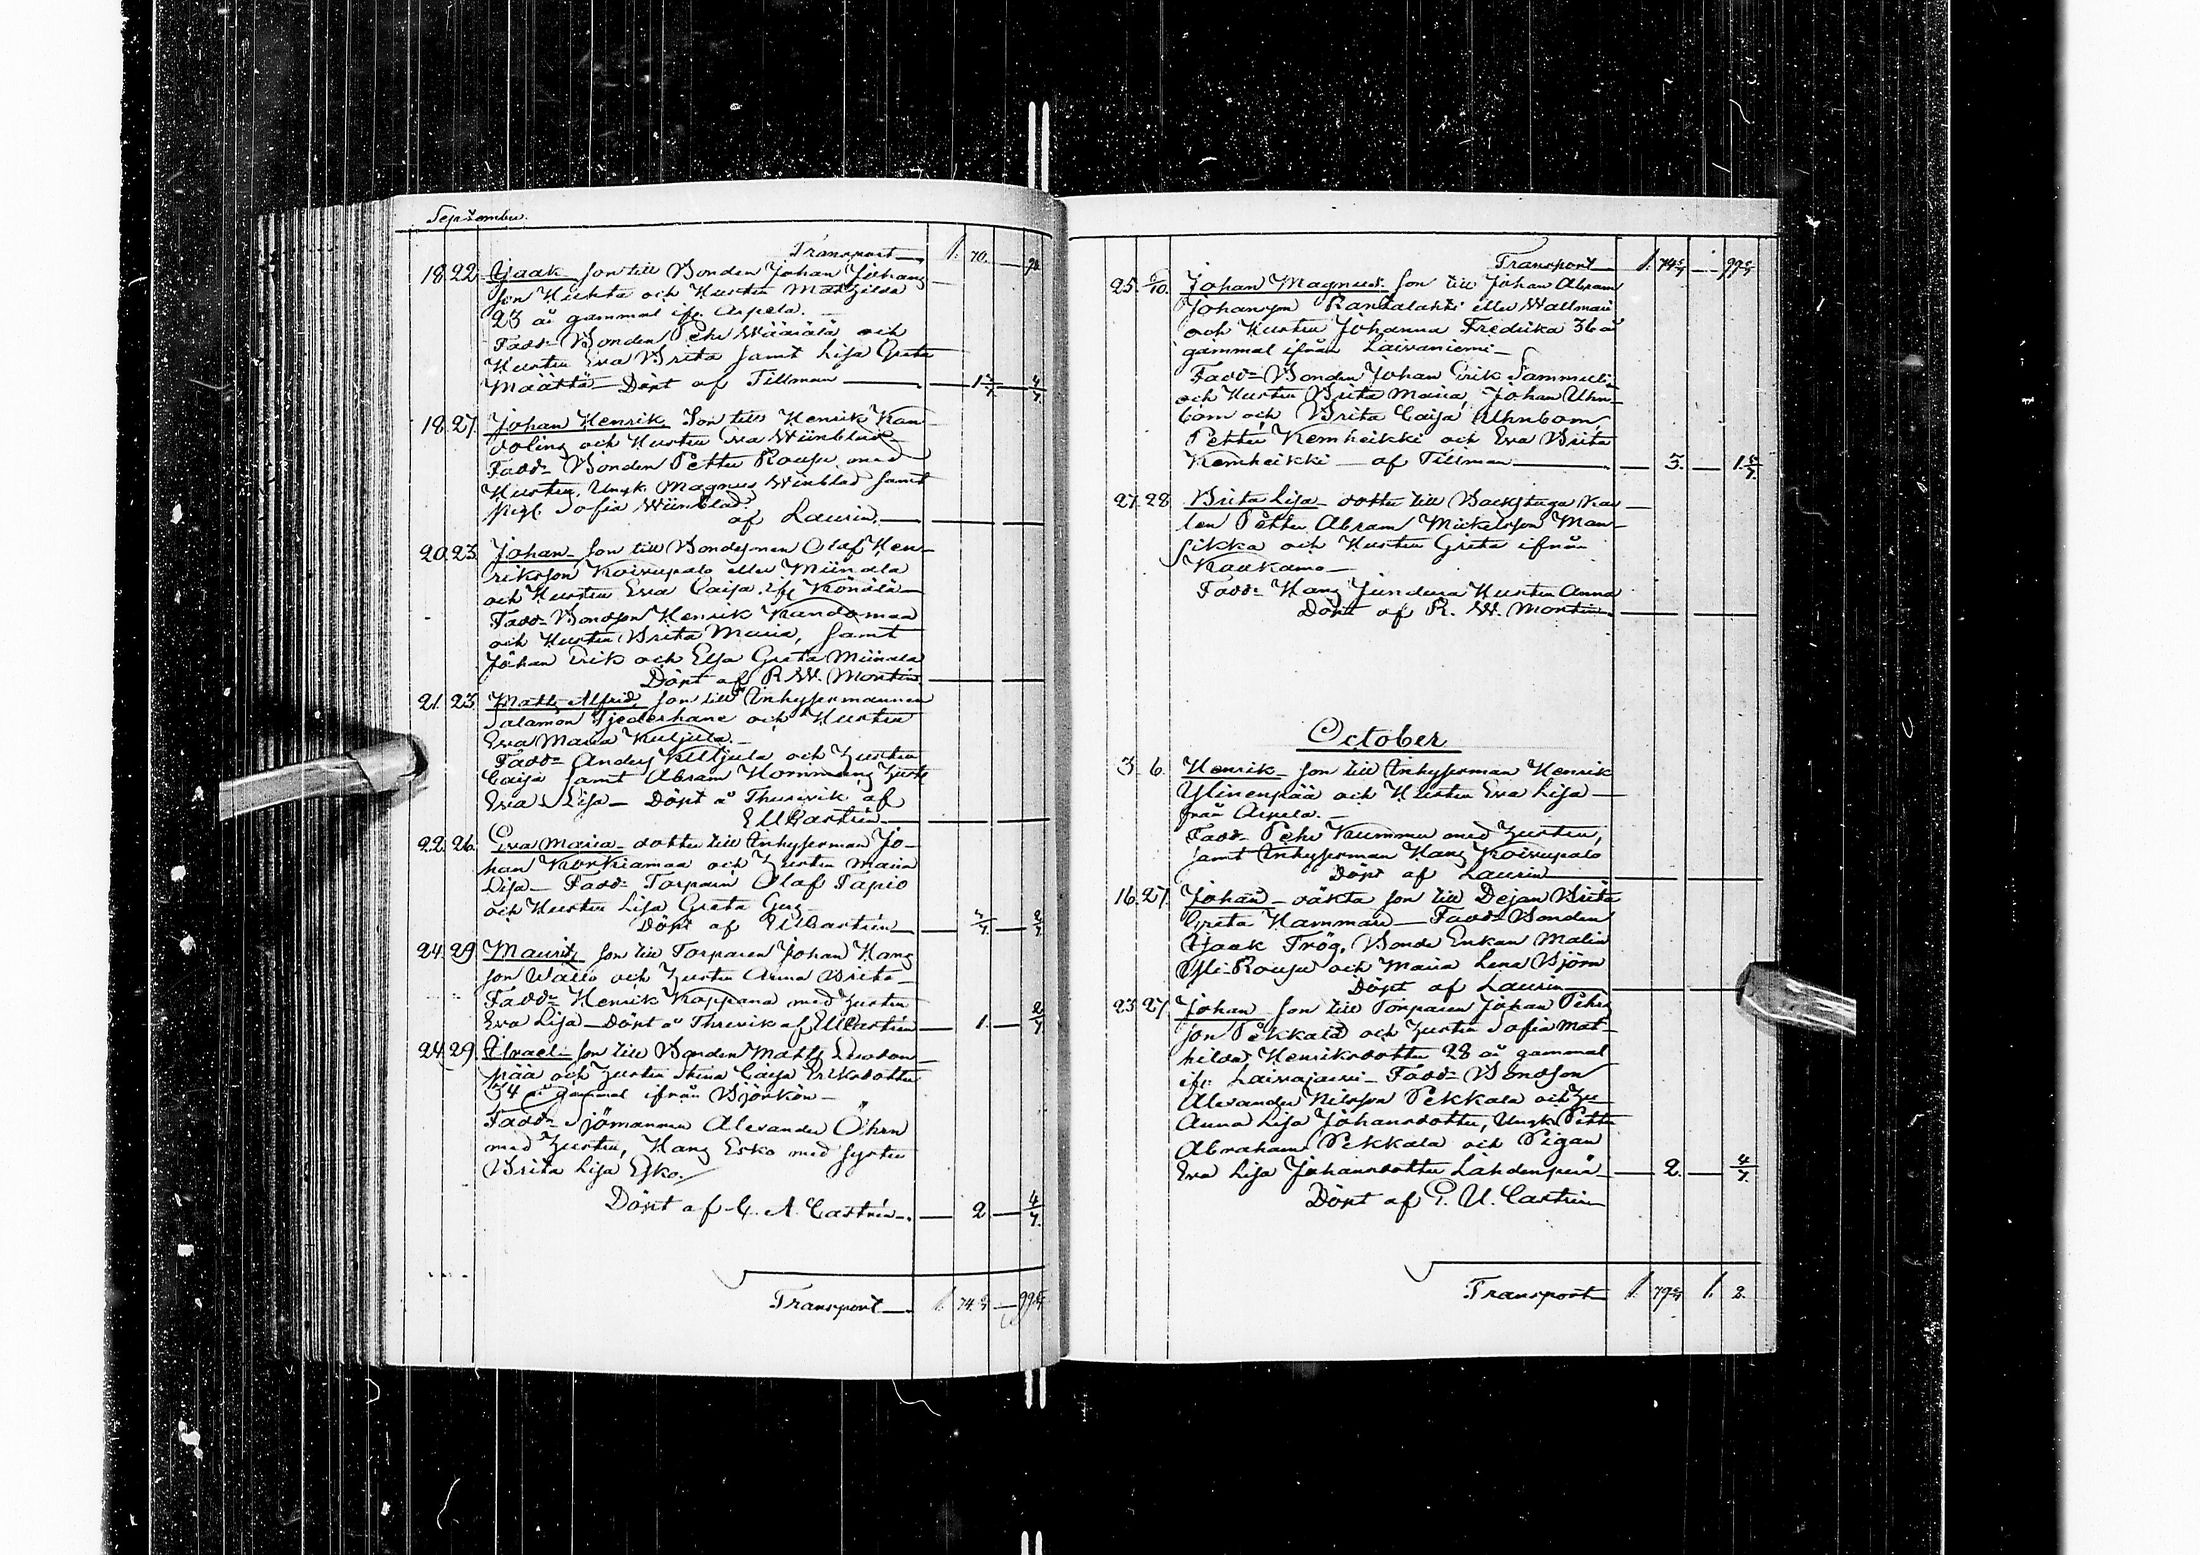 September.
Transport — 1. 70. — 98.
18. 22. Isaak son till Bonden Johan Johans-
son Huhta och Hustru Mathilda
23 år gammal ifr. Arpela. —
Fadd- Bonden Pehr Määrälä och
Hustru Eva Brita samt Lisa Greta
Määttä — Döpt af Tillman — 1 4/7
18. 27. Johan Henrik Son till Henrik Kan-
doling och Hustru Eva Wiinblad
Fadd- Bonden Petter Rousu med
Hustru, Ungk. Magnus Winblad samt
Pig. Sofia Wiinblad.
af Laurin. —
20. 23. Johan — son till Bondemån Olof Hen-
riksson Koivupalo eller Miinala
och Hustru Eva Caisa, ifr Könölä —
Fadd- Bondson Henrik Kandoman
och Hustru Brita Maria, samt
Johan Erik och Elsa Greta Miinala
Döpt af R. W. Montin
21. 23. Matts Alfred, son till Inhysermannen
Salamon Tjederhane och Hustru
Eva Maria Kuljula. —
Fadd- Anders Kuljula och Hustru
Caisa samt Abram Hommans Hustr
Eva Lisa — Döpt å Thurivik af
E U Castrén —
22. 26. Eva Maria — dotter till Inhyserman Jo-
han Korkiamaa och Hustru Maria
Lisa — Fadd- Torparen Olof Tapio
och Hustru Lisa Greta
Döpt af E U Castrén —
24. 29. Mauritz son till Torparen Johan Hans
son Wallo och Hustru Anna Brita —
Fadd- Henrik Kappana med Hustru
Eva Lisa — Döpt å Threvik af E U Castrén — 1. — 2/7
24. 29. Israel — son till Bonden Matts
pää och Hustru Stina Caisa Eriksdotter
34 år gammal ifrån Björkön —
Fadd- Sjömannen Alexander Öhrn
med Hustru, Hans Esko med syster
Brita Lisa Esko.
Döpt af C. A. Castrén —. — 2. — 4/7.
Transport —. 1. 74.
Transport — 1. 74
25. 6/10. Johan Magnus. Son till Johan Abram
Johansson Rantalahti eller Wallman
och Hustru Johanna Fredrika 36 år
gammal ifrån Laivaniemi —
Fadd- Bonden Johan Erik Sammeli
och Hustru Brita Maria, Johan Uhn-
bom och Brita Caisa Uhnbom,
Petter Kemheikki och Eva Brita
Kemheikki — af Tillman — 3. —
27. 28. Brita Lisa — dotter till Backstuga Kar
len Petter Abram Mickelsson Man-
sikka och Hustru Greta ifrån
Kaakamo —
Fadd- Hans Jundura Hustru Anna
Döpt af R. W. Montin
October
3. 6. Henrik — son till Inhyserman Henrik
Ylinenpää och Hustru Eva Lisa —
från Arpela. —
Fadd- Pehr Kummu med Hustru,
samt Inhyserman Hans Koivupalo
Döpt af Laurin —
16. 27. Johan — oäkta son till Dejan Brita
Greta Hammare — Fadd- Bonden
Isaak Frög, Bonde Enkan Malin
Yli-Rousu och Maria Lena Björn
Döpt af Laurin —
23. 27. Johan son till Torparen Johan Pehrs
son Pekkala och Hustru Sofia Mat-
hilda Henriksdotter 28 år gammal
ifr. Laivajärvi — Fadd- Bondson
Alexander Nilsson Pekkala och Hu
Anna Lisa Johansdotter, Ungk. Petter
Abraham Pekkala och Pigan
Eva Lisa Johansdotter Lahdenperä — 2. — 4/7.
Döpt af E. U. Castrén —
Transport 1. 79 1. 2.